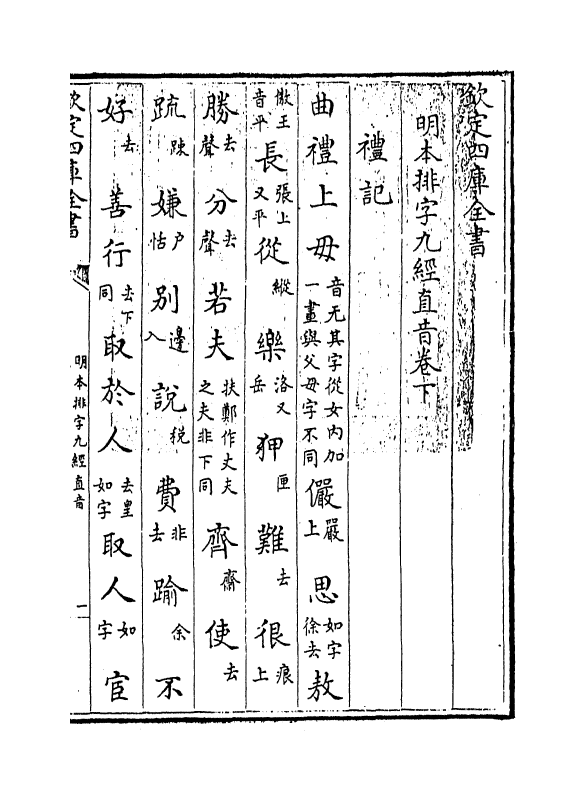 欽定四庫全書
明本排字九經直音卷下
禮記
曲禮上毋音无其字從女内加一畫與父母字不同儼嚴上思如字徐去敖
傲王音平長張上又平從縱樂洛又岳狎匣難去很痕上
勝去聲分去聲若夫扶鄭作丈夫之夫非下同齊齋使去
疏踈嫌户怗別邊入說税費非去踰余不
好去善行去下同取於人去皇如字取人如字宦
欽定四庫全書
明本排字九經直音
一